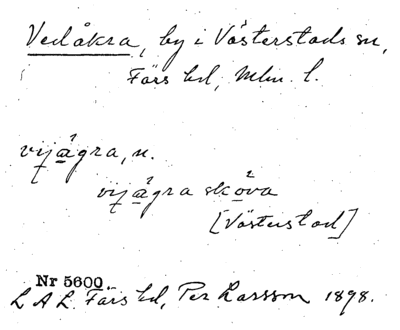 Vedåkra, by i Västerstads sn,
Färs hd, Mlm. l.
vijågra, n.
vijågra skóva
[Västerstad]
Nr 5600.
L A L. Färs hd, Per Larsson 1898.